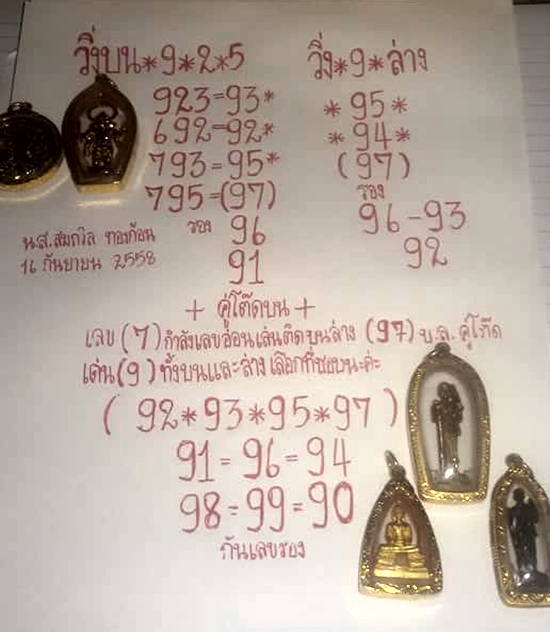 วิ่งบน*9*2*5
923=93*
692=92*
793=95*
795=(97)
รอง 96
91
วิ่ง*9*ล่าง
*95*
*94*
(97)
รอง
96-93
92
น.ส.สมถวิล ทองก้อน
16 กันยายน 2558
+ คู่โต๊ดบน +
เลข (7) กำลังเลขอ่อนเล่นติดบนล่าง (97) บ.ล. คู่โต๊ด
เด่น(9) ทั้งบนและล่างเลือกที่ชอบนะค่ะ
(92*93*95*97)
91=96=94
98=99=90
กันเลขรอง